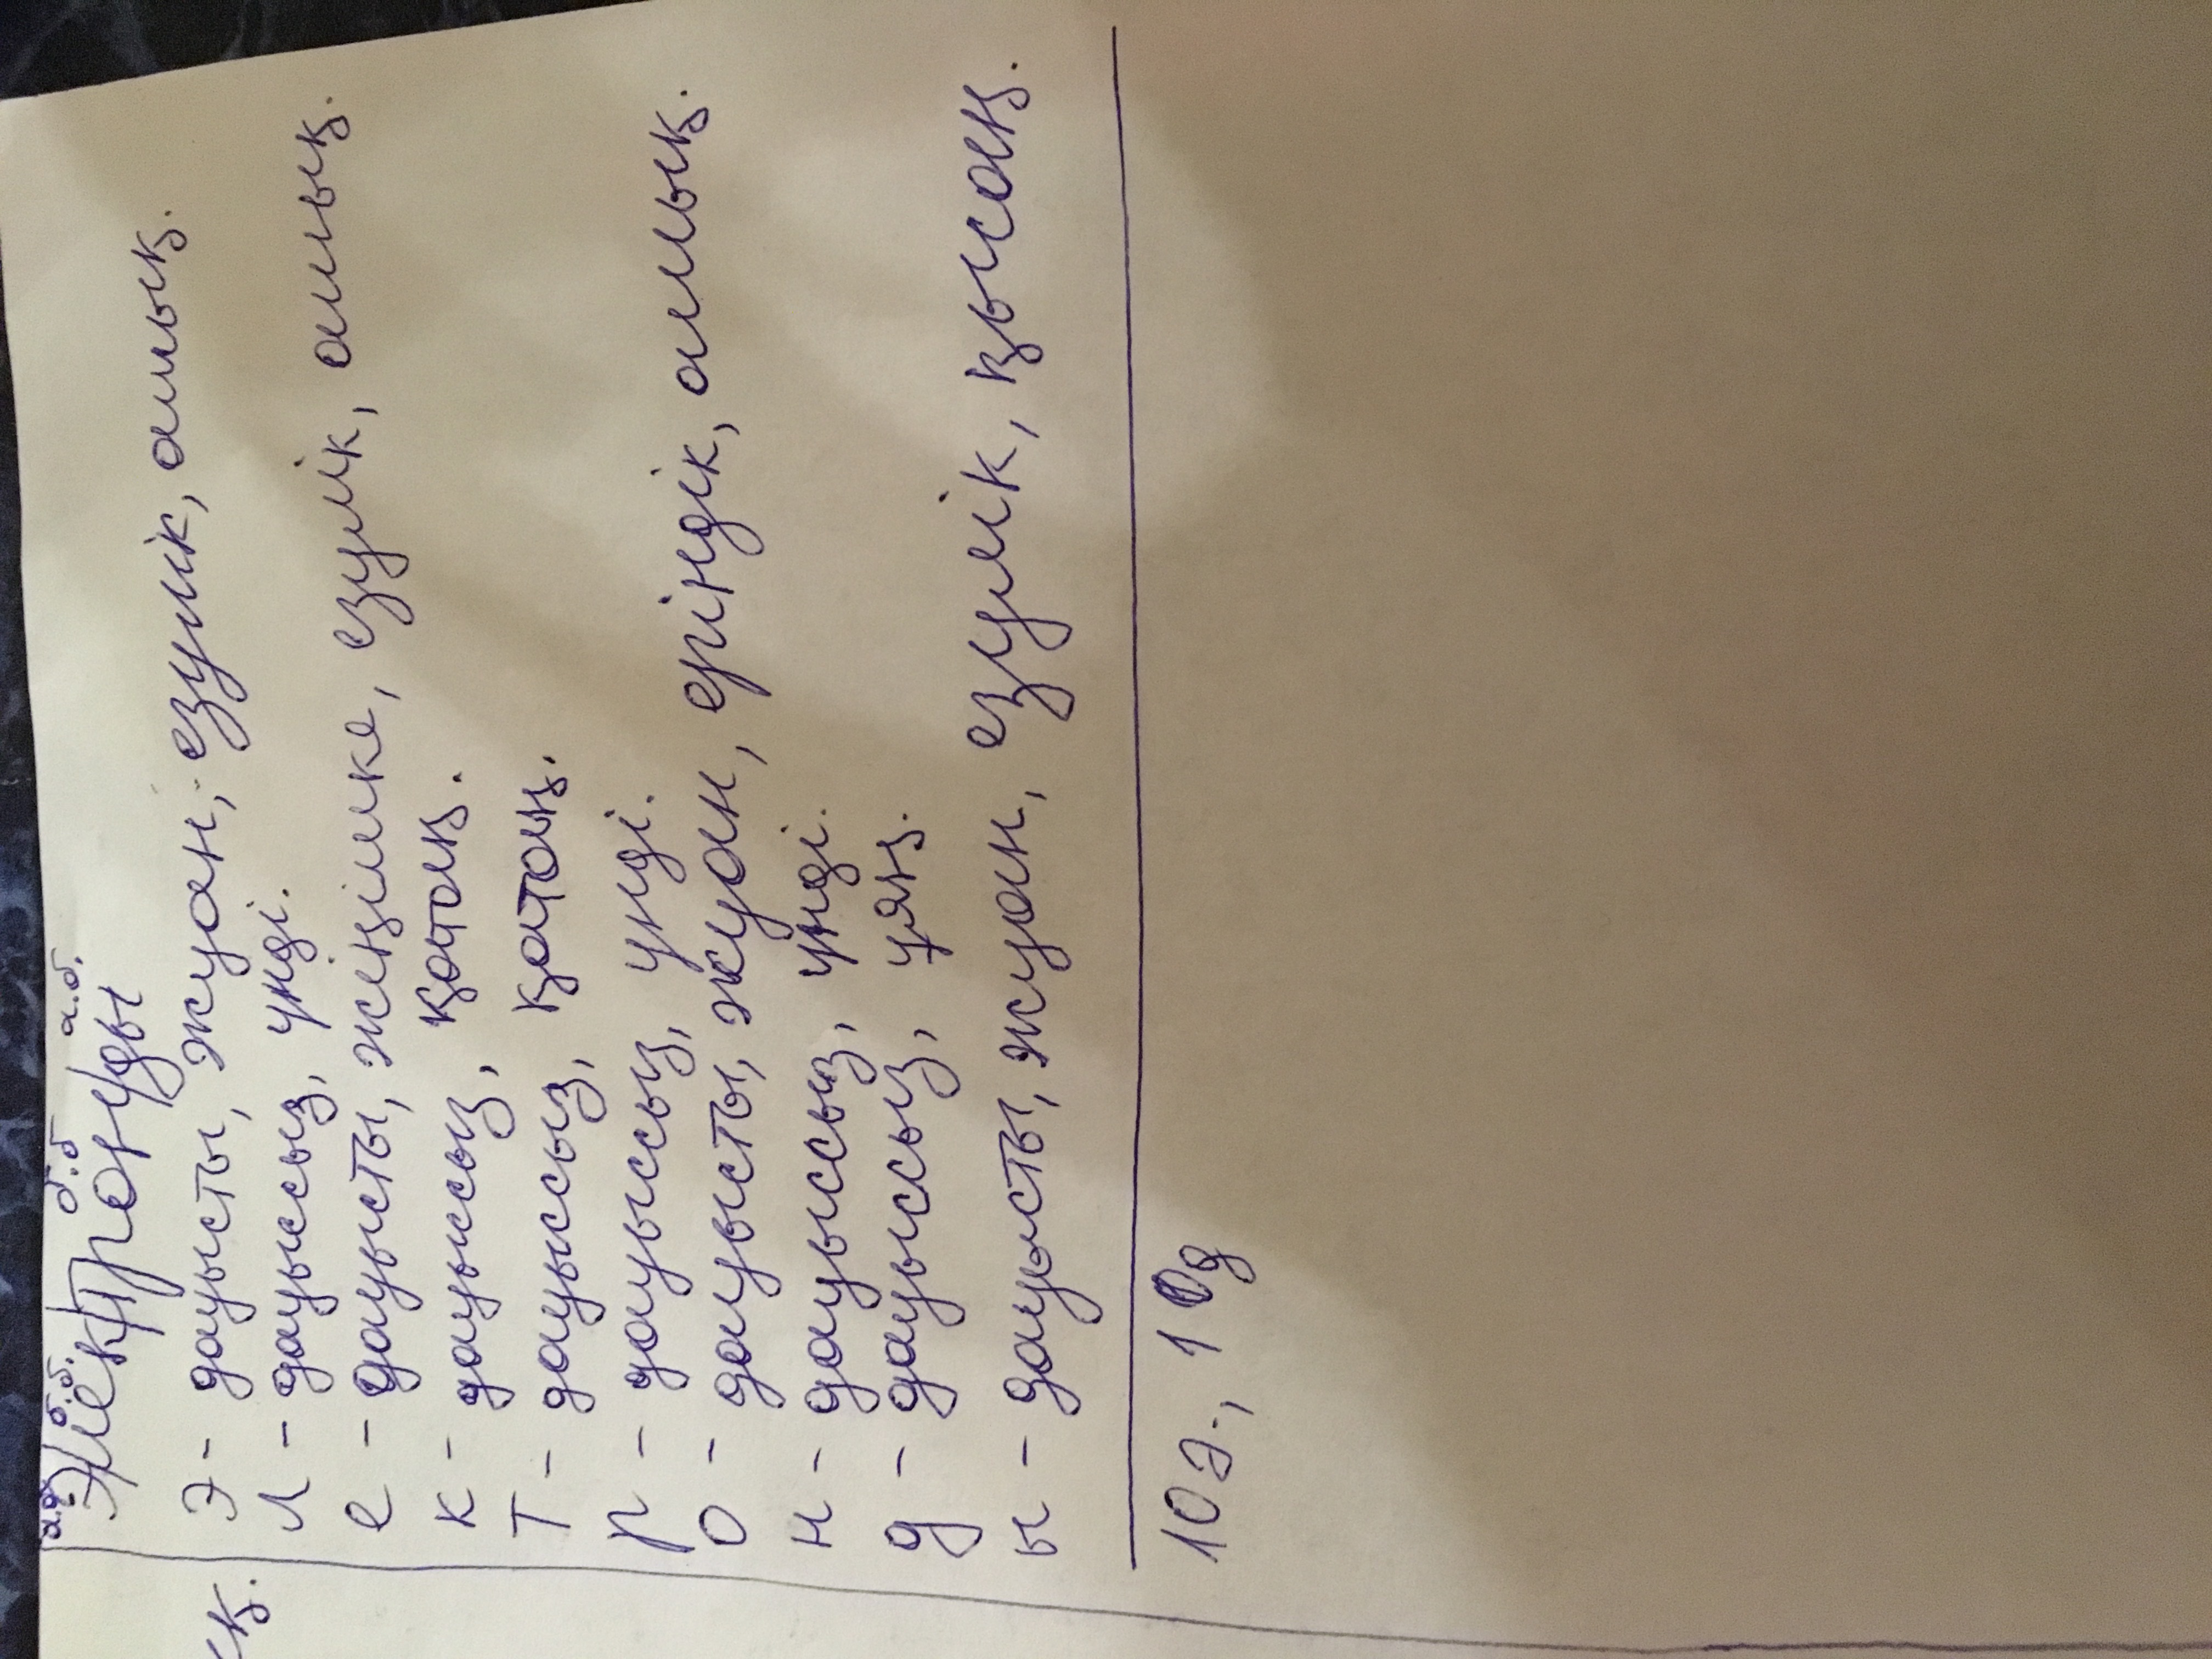 а.б. б.б. б.б а.б.
Э/ле/кт/рон/ды
Э - дауысты, жуан, езулік, ашық.
Л - дауыссыз, үнді.
е - дауысты, жеңішке, езулік, ашық.
к - дауыссыз, қатаң.
Т - дауыссыз, қатаң.
р - дауыссыз, үнді.
о - дауысты, жуан, еріндік, ашық.
н - дауыссыз, үнді.
д - дауыссыз, ұяң.
ы - дауысты, жуан, езулік, қысаң.
10ә., 10д
қ.